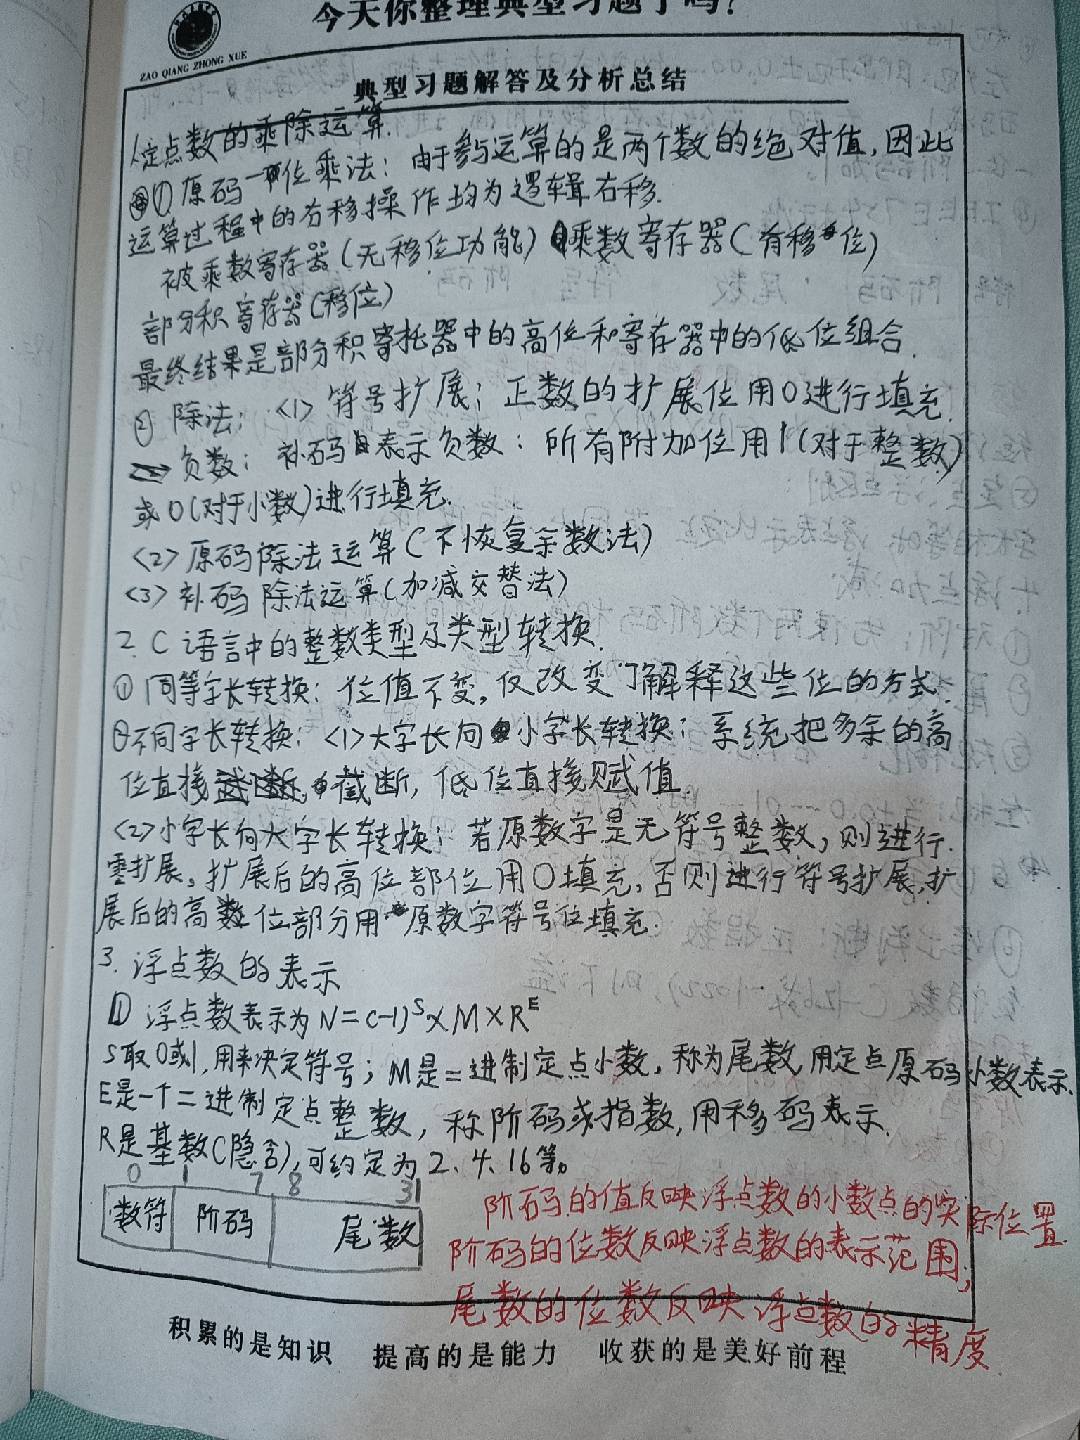 今天你整理典型习题了吗?
ZAO QIANG ZHONG XUE
典型习题解答及分析总结
1.定点数的乘除运算.
①原码一位乘法: 由于参与运算的是两个数的绝对值, 因此
运算过程中的右移操作均为逻辑右移.
被乘数寄存器(无移位功能) 乘数寄存器(有移位)
部分积寄存器(移位)
最终结果是部分积寄托器中的高位和寄存器中的低位组合.
② 除法: <1> 符号扩展; 正数的扩展位用0进行填充.
负数: 补码表示负数: 所有附加位用1(对于整数)
或0(对于小数)进行填充.
<2> 原码除法运算(不恢复余数法)
<3> 补码除法运算(加减交替法)
2. C语言中的整数类型及类型转换.
① 同等字长转换: 位值不变, 仅改变了解释这些位的方式.
②不同字长转换: <1>大字长向小字长转换: 系统把多余的高
位直接截断, 低位直接赋值.
<2>小字长向大字长转换; 若原数字是无符号整数, 则进行
零扩展, 扩展后的高位部位用0填充, 否则进行符号扩展, 扩
展后的高位部分用原数字符号位填充.
3. 浮点数的表示
① 浮点数表示为 N=(-1)^S×M×R^E
S取0或1, 用来决定符号; M是二进制定点小数, 称为尾数, 用定点原码小数表示.
E是一个二进制定点整数, 称阶码或指数, 用移码表示.
R是基数(隐含), 可约定为2、4、16等。
0 1 7 8 31
数符 阶码 尾数
阶码的值反映浮点数的小数点的实际位置
阶码的位数反映浮点数的表示范围;
尾数的位数反映浮点数的精度
积累的是知识 提高的是能力 收获的是美好前程